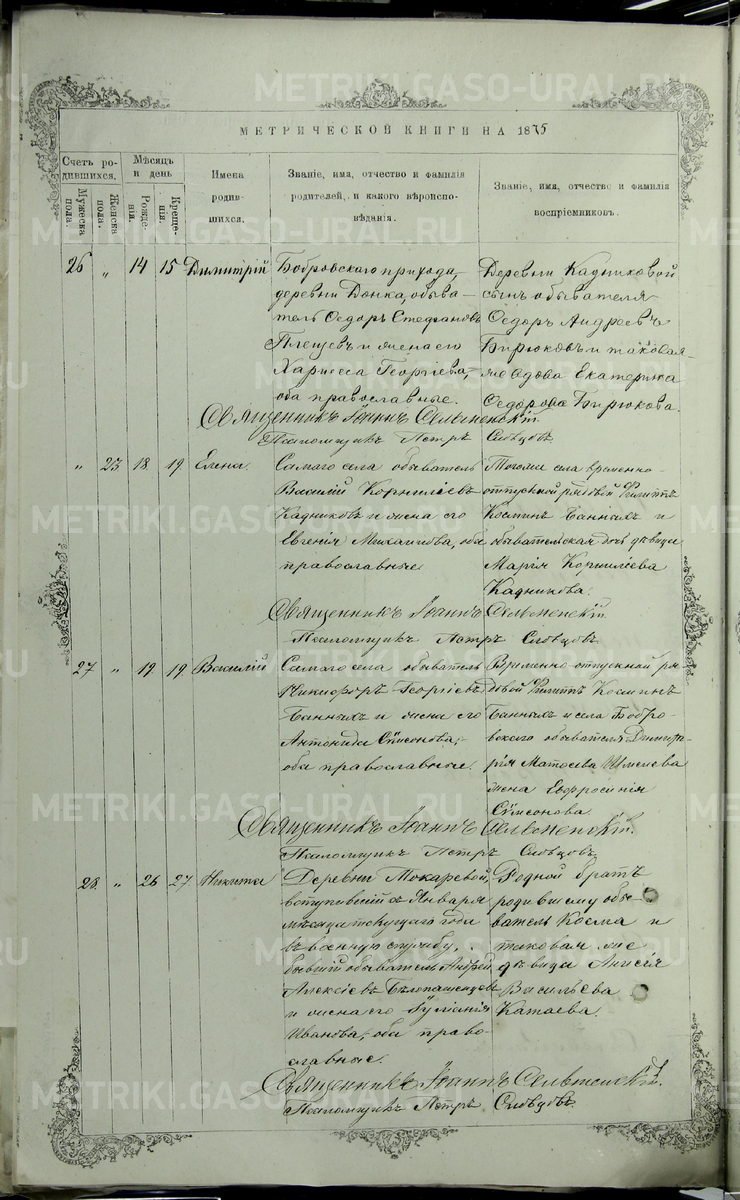 МЕТРИЧЕСКОЙ КНИГИ НА 1875
Счетъ ро-
дившихся.
Мужеска
пола.
Женска
пола.
Мѣсяцъ
и день
Рожде-
нія.
Креще-
нія.
Имена
родив-
шихся.
Званіе, имя, отчество и фамилія
родителей, и какого вѣроиспо-
вѣданія.
Званіе, имя, отчество и фамилія
воспріемниковъ.
26 „ 14 15 Димитрій
Бобровскаго прихода,
деревни Донка, обыва-
тель Ѳедоръ Стефановъ
Плещевъ и жена его
Хариесса Георгіева,
оба православные.
Деревни Кадниковой
сынъ обывателя
Ѳедоръ Андреевъ
Бирюковъ и таковая-
же вдова Екатерина
Ѳедорова Бирюкова.
Священникъ Іоаннъ
Псаломщикъ Петръ Словцовъ.
„ 23 18 19 Елена.
Самаго села обыватель
Василій Корниліевъ
Кадниковъ и жена его
Евгенія Михаилова, оба
православные.
Тогоже села временно-
отпускной рядовой Филиппъ
Косминъ Банныхъ и
обывательская дочь дѣвица
Марія Корниліева
Кадникова.
Священникъ Іоаннъ
Псаломщикъ Петръ Словцовъ.
27 „ 19 19 Василій
Самаго села обыватель
Никифоръ Георгіевъ
Банныхъ и жена его
Антонида Сѵмеонова,
оба православные.
Временно-отпускной ря-
довой Филиппъ Косминъ
Банныхъ и села Бобро-
вскаго обывателя Димит-
рія Матѳеева
жена Евфросинія
Сѵмеонова
Священникъ Іоаннъ
Псаломщикъ Петръ Словцовъ.
28 „ 26 27 Никита
Деревни Мокаревой,
вступившій съ Января
мѣсяца текущаго года
въ военную службу,
бывшій обыватель Андрей
Алексіевъ Бѣлопашенцевъ
и жена его Іуліанія
Иванова, оба право-
славные.
Родной братъ
родившему обы-
ватель Косма и
таковая же
дѣвица Анисія
Васильева
Катаева.
Священникъ Іоаннъ
Псаломщикъ Петръ Словцовъ.
METRIKI.GASO-URAL.RU